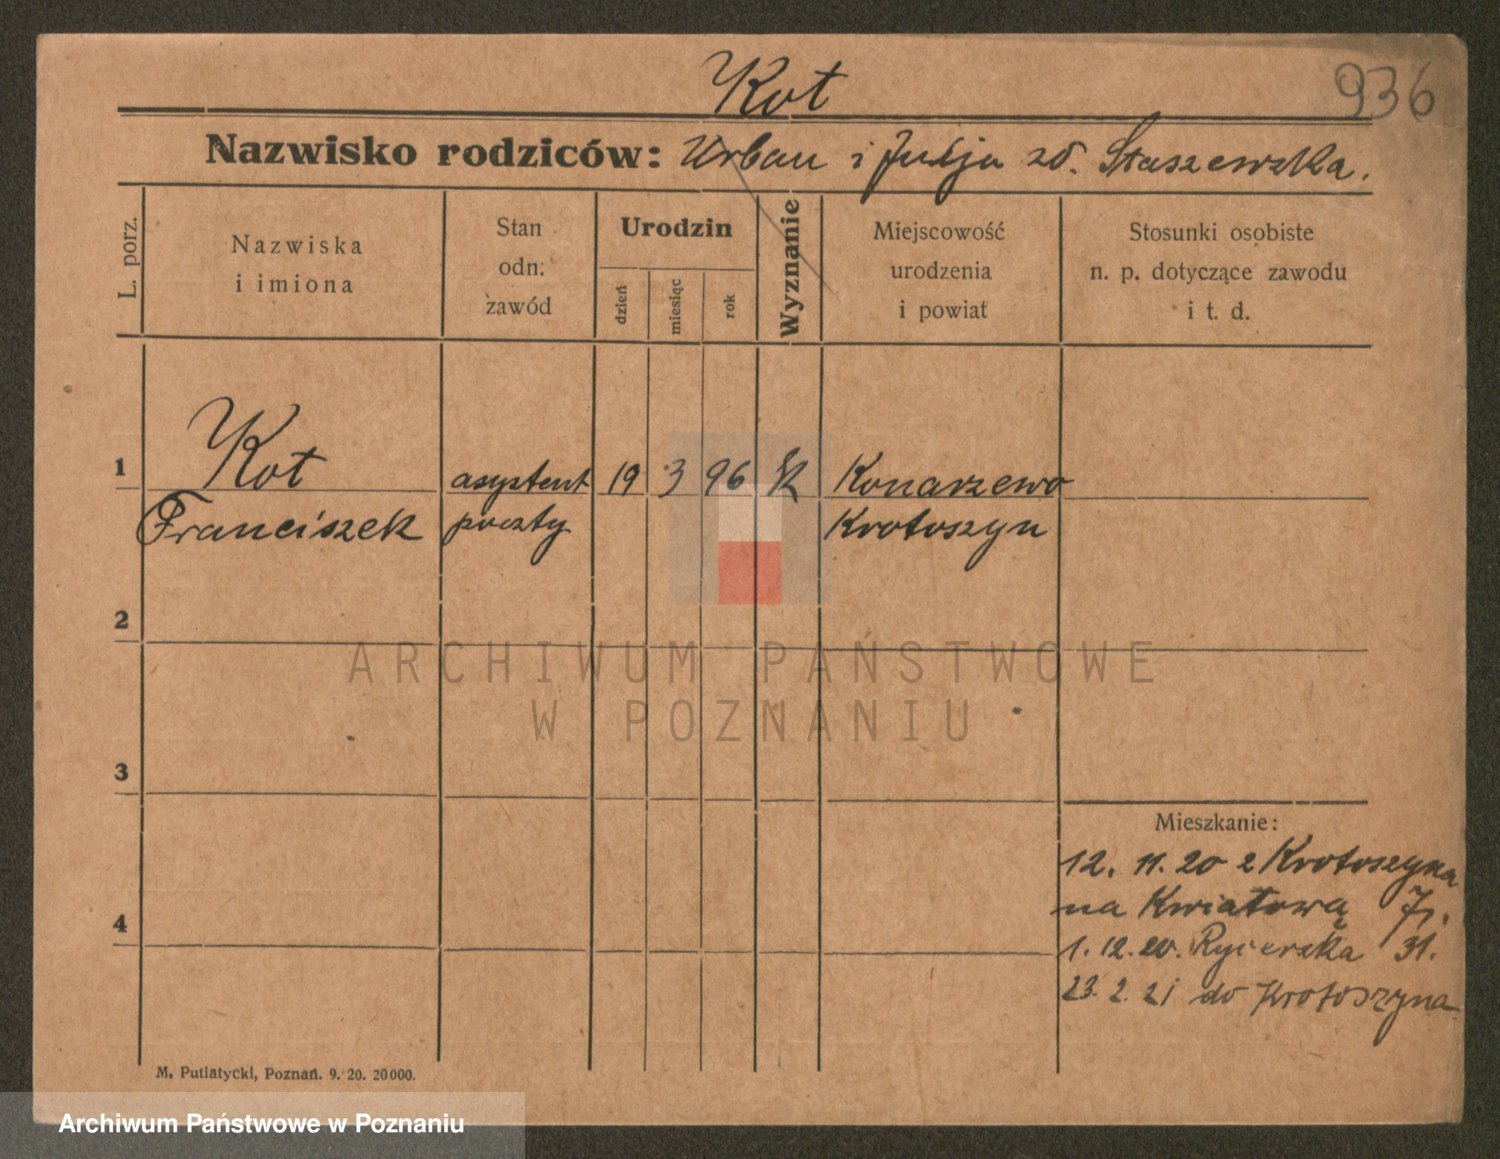 Kot
936
Nazwisko rodziców: Urban i Julja zd. Staszewska.
L. porz.
Nazwiska
i imiona
Stan
odn:
zawód
Urodzin
dzień
miesiąc
rok
Wyznanie
Miejscowość
urodzenia
i powiat
Stosunki osobiste
n. p. dotyczące zawodu
i t. d.
1 Kot asystent 19 3 96 K Konarzewo
Franciszek poczty Krotoszyn
2
ARCHIWUM PAŃSTWOWE
W POZNANIU
3
Mieszkanie:
12. 11. 20 z Krotoszyna
na Kwiatową 7.
4
1. 12. 20. Rycerska 31.
23. 2. 21 do Krotoszyna
M. Putiatycki, Poznań. 9. 20. 20000.
Archiwum Państwowe w Poznaniu